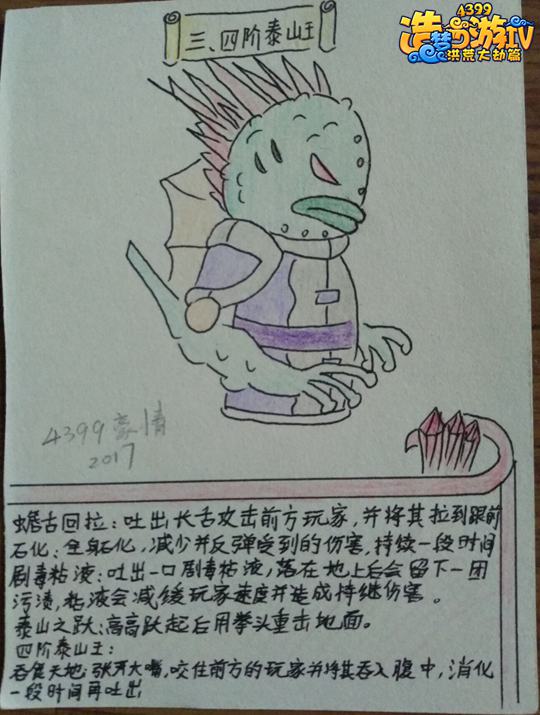 4399
造梦西游IV
洪荒大劫篇
三、四阶泰山王
4399豪情
2017
蟾舌回拉:吐出长舌攻击前方玩家,并将其拉到跟前
石化:全身石化,减少并反弹受到的伤害,持续一段时间
剧毒粘液:吐出一口剧毒粘液,落在地上后会留下一团
污渍,粘液会减缓玩家速度并造成持继伤害。
泰山之跃:高高跃起后用拳头重击地面。
四阶泰山王:
吞食天地:张开大嘴,咬住前方的玩家并将其吞入腹中,消化
一段时间再吐出